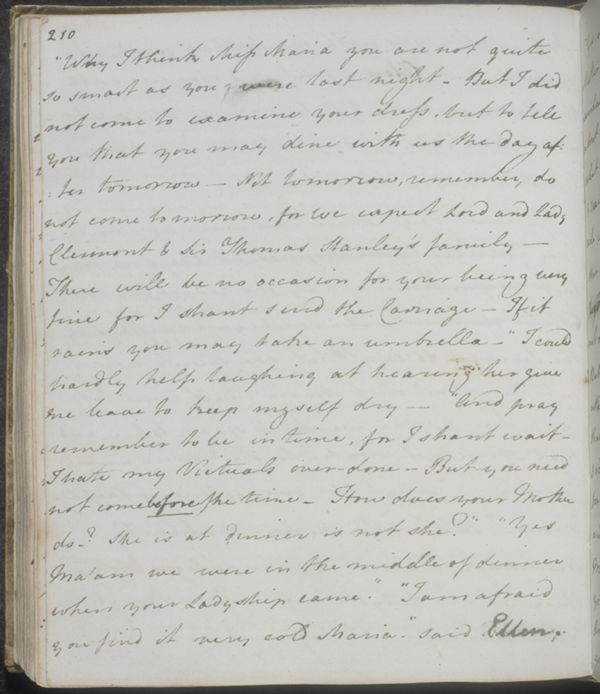 210
"Why I think Miss Maria you are not quite
so smart as you were last night - But I did
not come to examine your dress, but to tell
you that you may dine with us the day af:
:ter tomorrow — Not tomorrow, remember, do
not come tomorrow, for we expect Lord and Lady
Clermont & Sir Thomas Stanley's family —
There will be no occasion for your being very
fine for I shant send the Carriage — If it
rains you may take an umbrella -" I could
hardly help laughing at hearing her give
me leave to keep myself dry — "And pray
remember to be in time, for I shant wait -
I hate my Victuals over-done - But you need
not come before the time - How does your Mother
do? She is at dinner is not she?" "Yes
Ma'am we were in the middle of dinner
when your Ladyship came." "I am afraid
you find it very cold Maria." said Ellen.